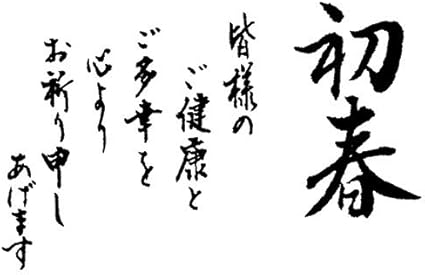 初春
皆様の
ご健康と
ご多幸を
心より
お祈り申し
あげます